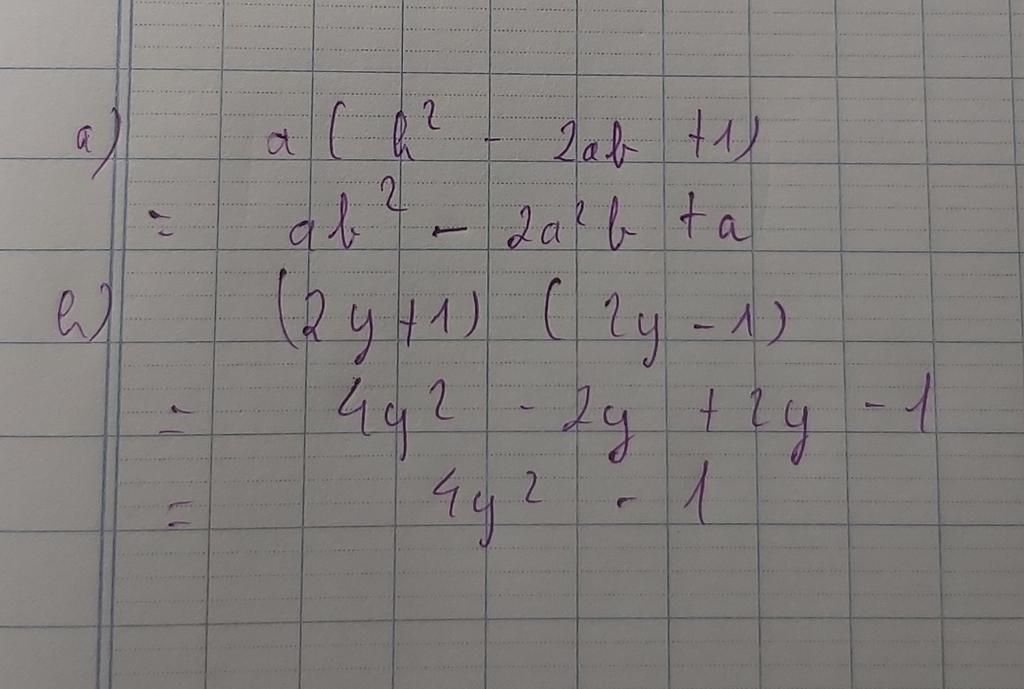 a) a ( b² - 2ab + 1 )
= ab² - 2a²b + a
b) (2y + 1) ( 2y - 1 )
= 4y² - 2y + 2y - 1
= 4y² - 1